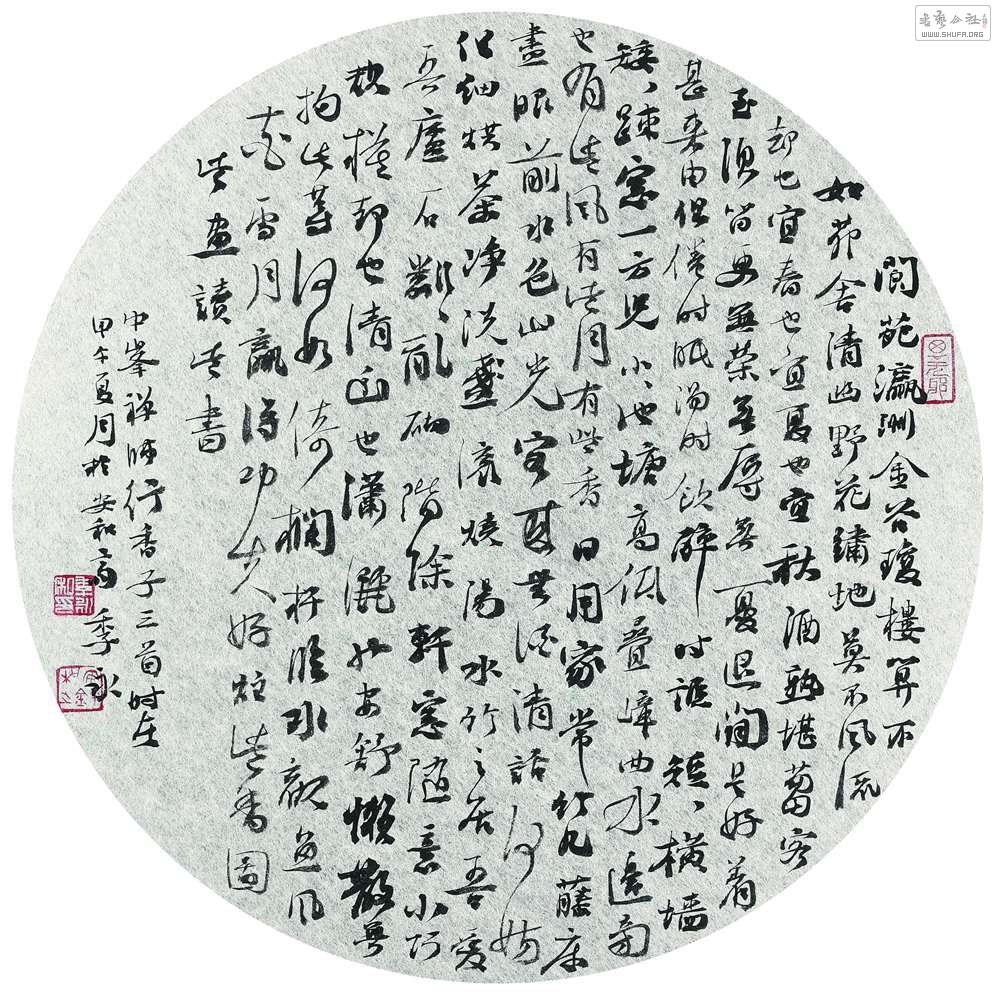 閬苑瀛洲金谷瓊樓算不
如茆舍清幽野花繡地莫不風流
却也宜春也宜夏也宜秋酒熟堪蒭客
至須留更無榮無辱無憂退閒是好着
甚來由但倦時眠渴時飲醉時謳短々橫墻
矮々踈窓一方兒小々池塘高低疊嶂曲水邊旁
也有些風有些月有些香日用家常竹几藤床
盡眼前水色山光客來無酒清話何妨
但細烘茶淨洗盞滾燒湯水竹之居吾愛
吾廬石粼々亂砌階除軒窓隨意小巧
規模却也清幽也瀟灑也安舒懶散無
拘此等何如倚欄杆臨水觀魚風
花雪月贏得功夫好炷些香圖
些畫讀些書
中峯禪師行香子三首時在
甲午夏月於安和齋季永
書藝公社
WWW.SHUFA.ORG